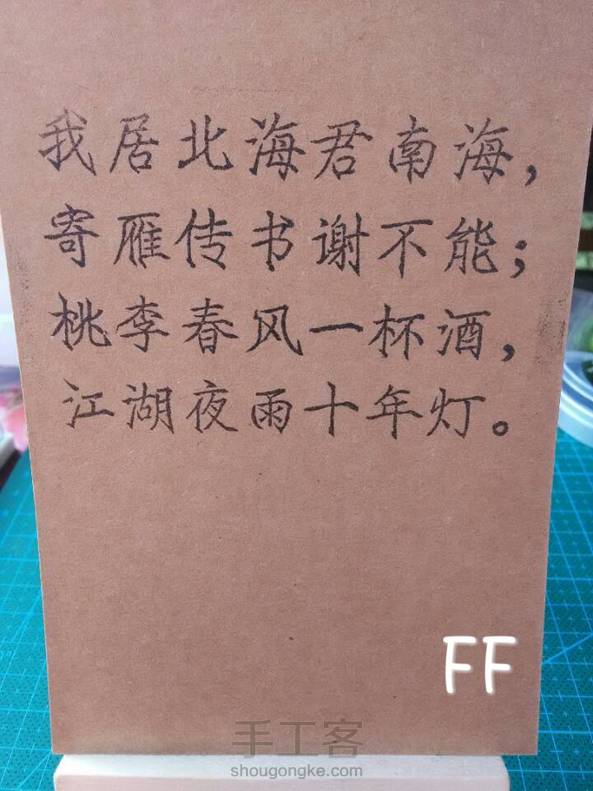 我居北海君南海，
寄雁传书谢不能；
桃李春风一杯酒，
江湖夜雨十年灯。
FF
手工客
shougongke.com